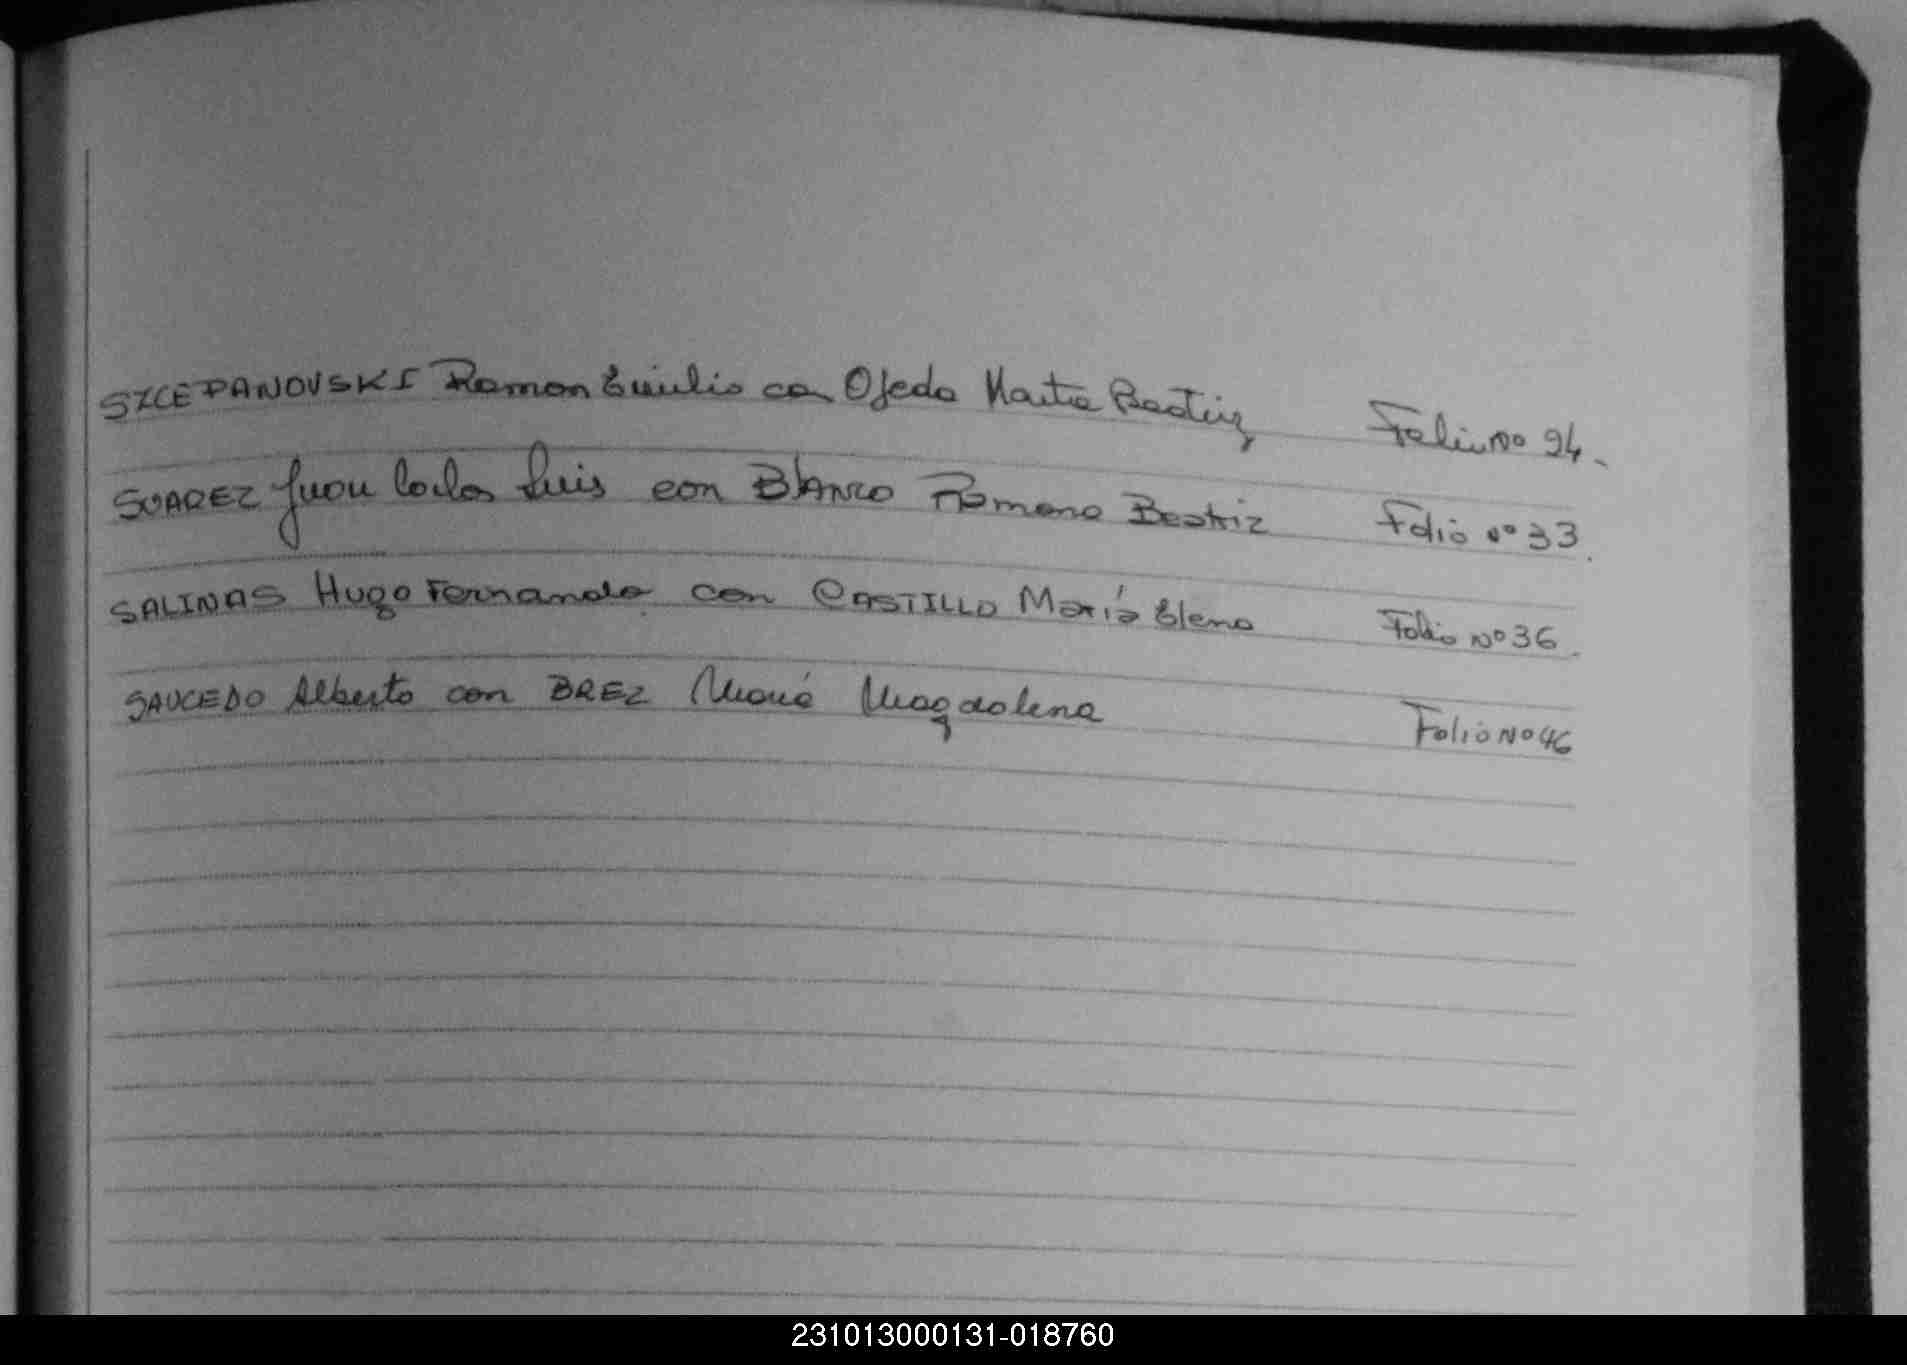 SZCEPANOVSKI Ramon Emilio con Ojeda Marta Beatriz Folio Nº 24.
SUAREZ Juan Carlos Luis con BLANCO Ramona Beatriz Folio Nº 33.
SALINAS Hugo Fernando. con CASTILLO María Elena Folio Nº 36.
SAUCEDO Alberto con BREZ María Magdalena Folio Nº 46
231013000131-018760